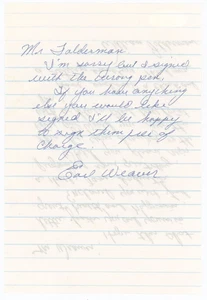 Mr. Falderman
I'm sorry but I signed
with the wrong pen.
If you have anything
else you would like
signed I'll be happy
to sign them free of
charge
Earl Weaver